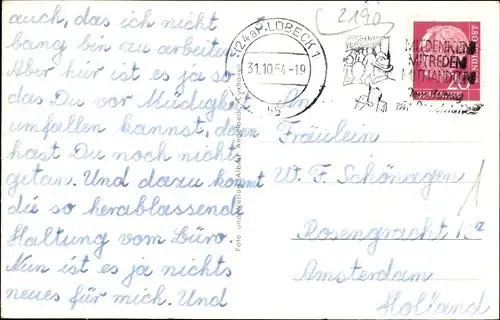 auch, das ich nicht
bang bin zu arbeiten
Aber hier ist es ja so
das Du vor Müdigkeit
umfallen kannst, dann
hast Du noch nichts
getan. Und dazu kommt
die so herablassende
Haltung vom Büro
Nun ist es ja nichts
neues für mich. Und
2190
(24a) LÜBECK 1
31.10.54.-19
MITDENKEN
MITREDEN
MITHANDELN
BUNDESPOST
20
An
Fräulein
W. F. Schönagen
Rosengracht
Amsterdam
Holland